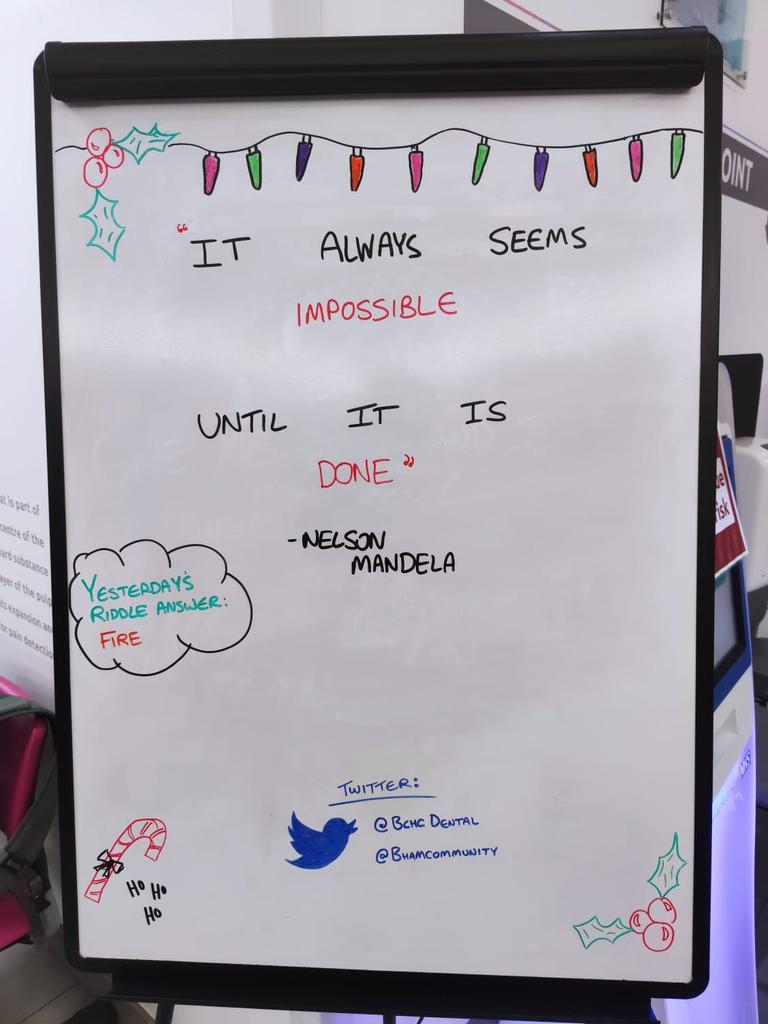 "IT ALWAYS SEEMS
IMPOSSIBLE
UNTIL IT IS
DONE"
-NELSON
MANDELA
YESTERDAY'S
RIDDLE ANSWER:
FIRE
TWITTER:
@BCHC DENTAL
@BHAMCOMMUNITY
HO HO
HO
OINT
at is part of
centre of the
ard substance
ayer of the pulp
its expansion an
for pain detectio
be
risk
NHS